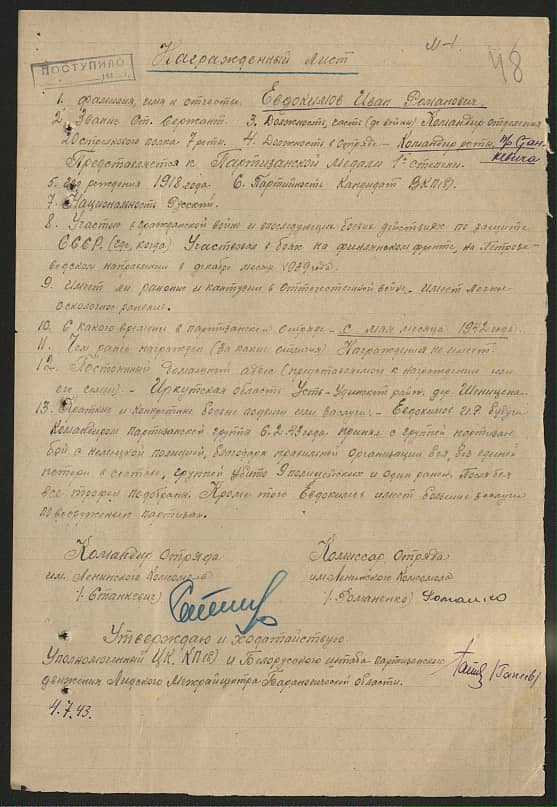 М-1.
48
ПОСТУПИЛО
Награжденный лист
1. Фамилия, имя и отчество Евдокимов Иван Романович
2. Звание Ст. Сержант. 3. Должность, часть (до войны) Командир отделения
20 стрелкового полка 7 рота. 4. Должность в отряде - Командир роты
Представляется к Партизанской медали 1й степени.
5. год рождения 1918 года. 6. Партийность Кандидат ВКП(б).
7. Национальность Русский.
8. Участие в гражданской войне и последующих боевых действиях по защите
СССР. (где, когда) Участвовал в боях на финлянском фронте, на Петроза-
водском направлении в декабре месяце 1939 года.
9. Имеет ли ранения и контузии в Отечественной войне - имеет легкое
осколочное ранение.
10. С какого времени в партизанском отряде - с мая месяца 1942 года.
11. Чем ранее награжден (за какие отличия) Награждений не имеет
12. Постоянный домашний адрес (представляемого к награждению или
его семьи) - Иркутская область Усть-Удинский район, дер.
13. Краткие и конкретные боевые подвиги или заслуги - Евдокимов И.Р. будучи
Командиром партизанской группы 6.2.43 года принял с группой партизан
бой с немецкой полицией, благодаря правильной организации боя, без единой
потери в составе, группой убито 9 полицейских и один ранен. После боя
все трофеи подобраны. Кроме того Евдокимов имеет большие заслуги
по вооружению партизан.
Командир Отряда Комиссар Отряда
им. Ленинского Комсомола им. Ленинского Комсомола
/Станкевич/ /Романенко/
Утверждаю и ходатайствую
Уполномоченный ЦК. КП(б) и Белорусского штаба партизанского
движения Лидского Межрайцентра Барановической области.
4.7.43.